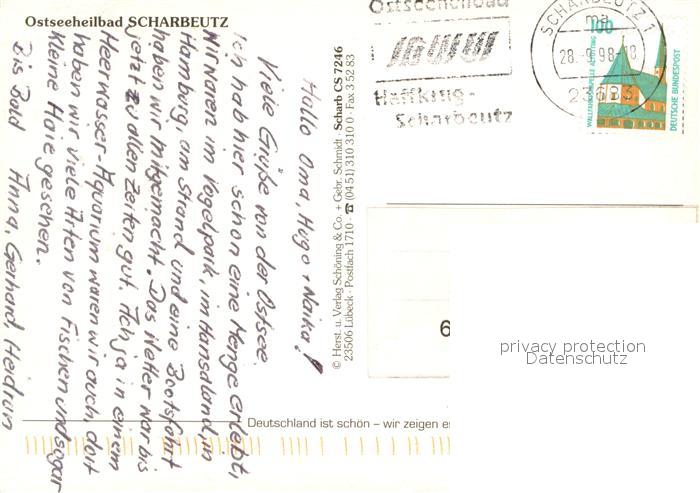 Ostseeheilbad SCHARBEUTZ
Hallo Oma, Hugo + Naika!
Viele Grüße von der Ostsee.
Ich hier schon eine Menge erlebt,
Wir waren im Vogelpark, im Hansaland in
Hamburg, am Strand und eine Bootsfahrt
haben wir mitgemacht. Das Wetter war bis
jetzt zu allen Zeiten gut. Ach ja in einem
Meerwasser-Aquarium waren wir auch, dort
haben wir viele Arten von Fischen und sogar
kleine Haie gesehen.
Bis Bald Anna, Gerhard, Heidrun
© Herst. u. Verlag Schöning & Co. + Gebr. Schmidt · Scharb CS 7246
23506 Lübeck · Postfach 1710 · ☎ (04 51) 310 310 0 · Fax 3 52 83
Ostseeheilbad
Haffkrug-
Scharbeutz
SCHARBEUTZ 1
ma
28.-9.98-18
23683
100
WALLFAHRTSKAPELLE ALTÖTTING
DEUTSCHE BUNDESPOST
6
privacy protection
Datenschutz
Deutschland ist schön – wir zeigen es